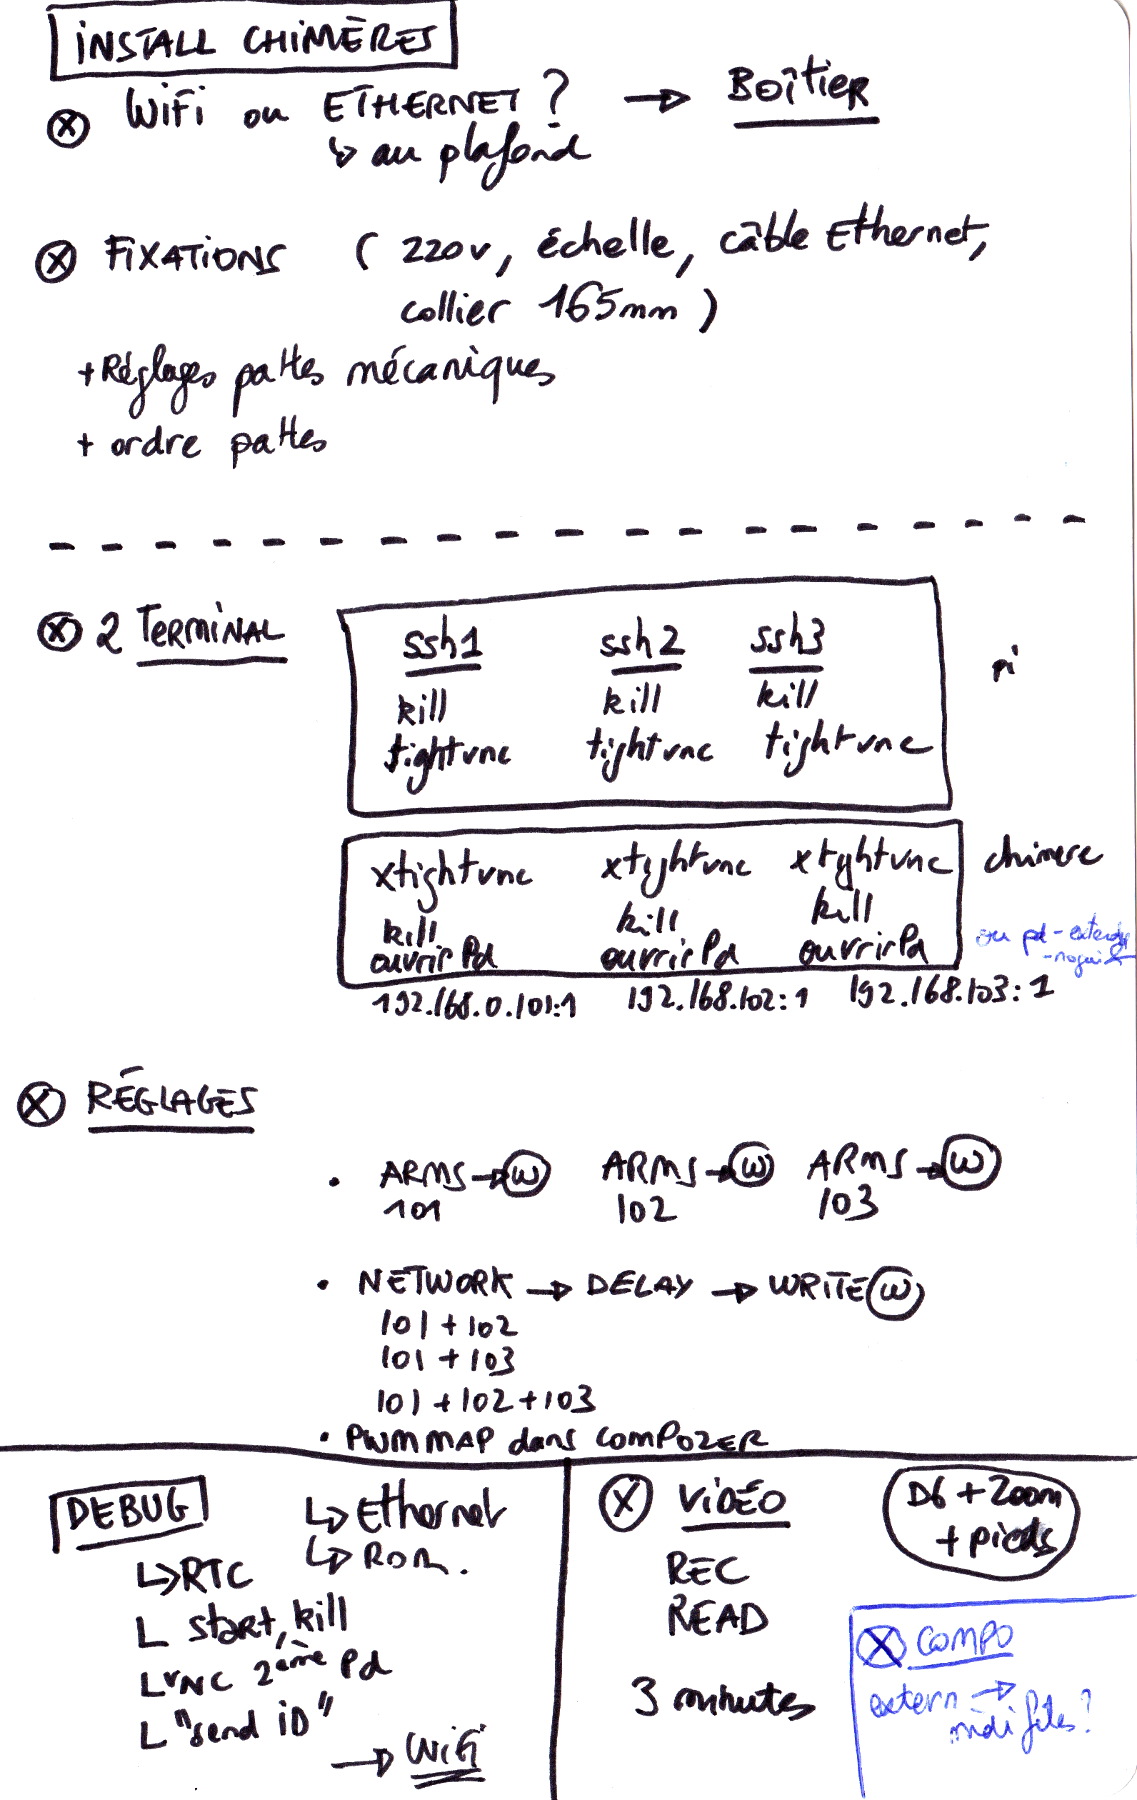 INSTALL CHIMÈRES
ⓧ WiFi ou ETHERNET ? → BOîTiER
↳ au plafond
ⓧ FiXATiONS ( 220v, échelle, câble Ethernet,
collier 165mm )
+ Réglages pattes mécaniques
+ ordre pattes
ⓧ 2 TERMiNAL
ssh1 ssh2 ssh3
kill kill kill
tightvnc tightvnc tightvnc
pi
xtightvnc xtyhtvnc xtyhtvnc
kill kill kill
ouvrir Pd ouvrir Pd ouvrir Pd
chimere
ou pd-extended
192.168.0.101:1 192.168.102:1 192.168.103:1
ⓧ RÉGLAGES
• ARMS → Ⓦ ARMS → Ⓦ ARMS → Ⓦ
101 102 103
• NETWORK → DELAY → WRiTE Ⓦ
101 + 102
101 + 103
101 + 102 + 103
• PWM MAP dans COMPOZER
DEBUG
↳ Ethernet
↳ ROM.
↳ RTC
L start, kill
L VNC 2ème Pd
L "send iD"
→ WiFi
ⓧ ViDÉO
REC
READ
3 minutes
D6 + Zoom
+ pieds
ⓧ COMPO
extern →
midi files?